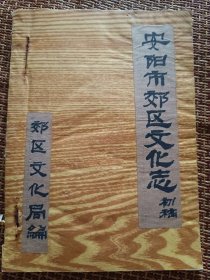 安阳市郊区文化志
初稿
郊区文化局编